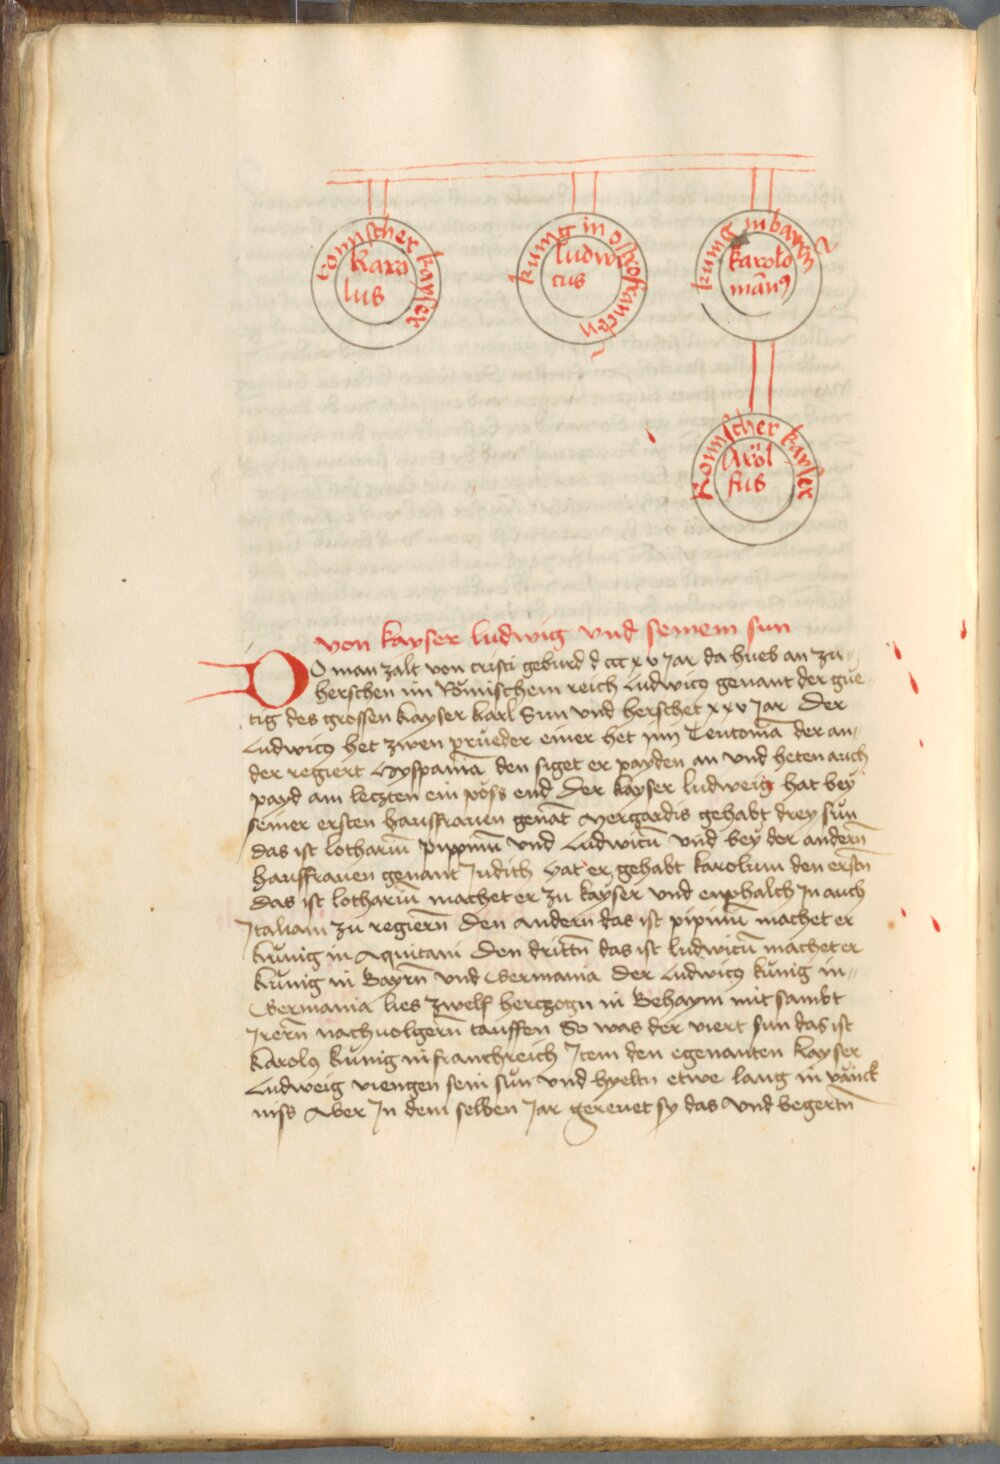 romischer kayser
Karo
lus
kunig in ostrofrancken
ludwi
cus
kunig in bayrn
karolo
mãnꝰ
Romischer kayser
Arnol
fus
von kayser ludwig vnd seinem sun
DO man zalt von cristi geburd d ccc x v Jar da hueb an zu
herschen im Römischem reich Ludwicꝰ genant der gue
tig des grossen kayser karl Sun vnd herschet xxv Jar Der
Ludwicꝰ het zwen prüeder einer het inn Teutoniã der an
der regiert Hyspaniã den siget er payden an vnd heten auch
payd am leczten ein pöss end Der kayser ludweig hat bey
seiner ersten hausfrauen genãt yergardis gehabt drey sün
das ist lothariũ pippinũ vnd Ludwicũ vnd bey der andern̄
hausfrauen genant Judith hat er gehabt karolum den erstn̄
das ist lothariũ machet er zu kayser vnd enphalch In auch
Italiam zu regiern̄ Den andern das ist pipinũ machet er
künig in Aquitani Den drittn̄ das ist ludwicũ machet er
künig in Bayrn̄ vnd Germania Der Ludwicꝰ künig in
Germania lies zwelf herczogn in Behaym mit sambt
Irern̄ nachuolgern̄ tauffen So was der viert sun das ist
karolꝰ künig in franchreich Item den egenanten kayser
Ludweig viengen sein sün vnd hyeltn etwe lang in vänck
niss Aber In dem selben Jar gereuet sy das vnd begertn̄